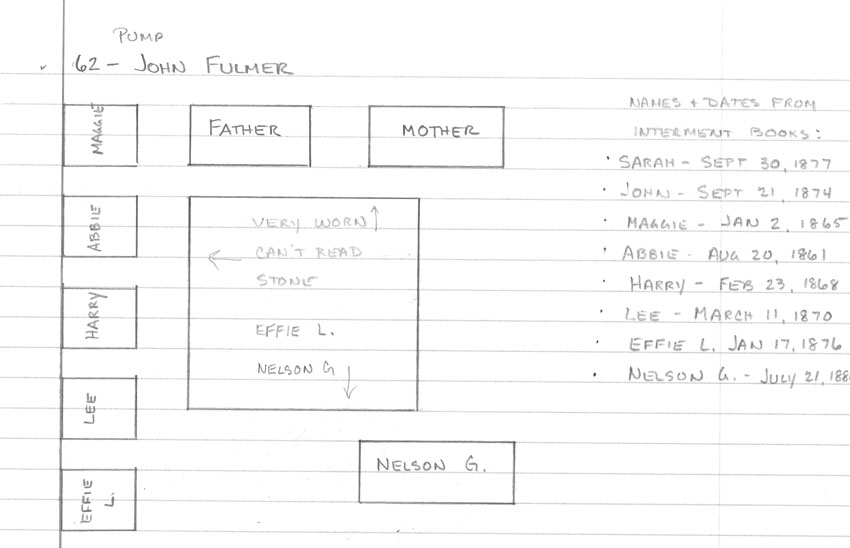 PUMP
62 - JOHN FULMER
MAGGIE
FATHER
MOTHER
ABBIE
VERY WORN ↑
← CAN'T READ
STONE
EFFIE L.
NELSON G ↓
HARRY
LEE
EFFIE
L.
NELSON G.
NAMES + DATES FROM
INTERMENT BOOKS:
· SARAH - SEPT 30, 1877
· JOHN - SEPT 21, 1874
· MAGGIE - JAN 2, 1865
· ABBIE - AUG 20, 1861
· HARRY - FEB 23, 1868
· LEE - MARCH 11, 1870
· EFFIE L. JAN 17, 1876
· NELSON G. - JULY 21,